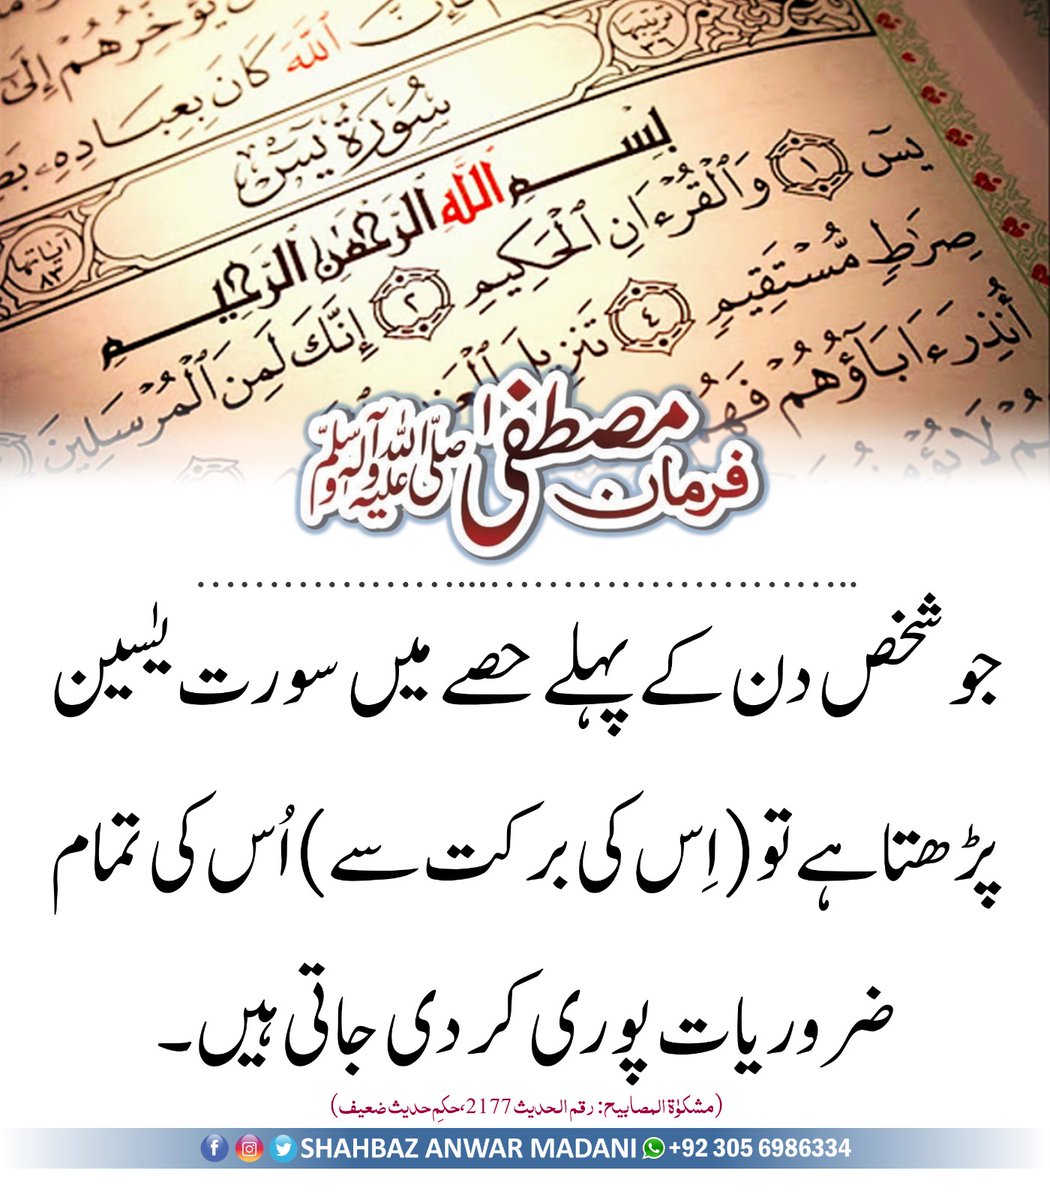 يُؤَخِّرُهُمْ إِلَىٰ
ٱللَّهَ كَانَ بِعِبَادِهِۦ
سُورَةُ يسٓ
آياتها ٨٣
بِسْمِ اللَّهِ الرَّحْمَٰنِ الرَّحِيمِ
يسٓ ١ وَٱلْقُرْءَانِ ٱلْحَكِيمِ ٢ إِنَّكَ لَمِنَ ٱلْمُرْسَلِينَ
صِرَٰطٍ مُّسْتَقِيمٍ ٤ تَنزِيلَ
أُنذِرَ ءَابَآؤُهُمْ
فرمان مصطفیٰ صلی اللہ علیہ وآلہ وسلم
جو شخص دن کے پہلے حصے میں سورت یٰسین
پڑھتا ہے تو (اِس کی برکت سے) اُس کی تمام
ضروریات پوری کر دی جاتی ہیں۔
(مشکوٰۃ المصابیح: رقم الحدیث 2177، حکمِ حدیث ضعیف)
SHAHBAZ ANWAR MADANI +92 305 6986334